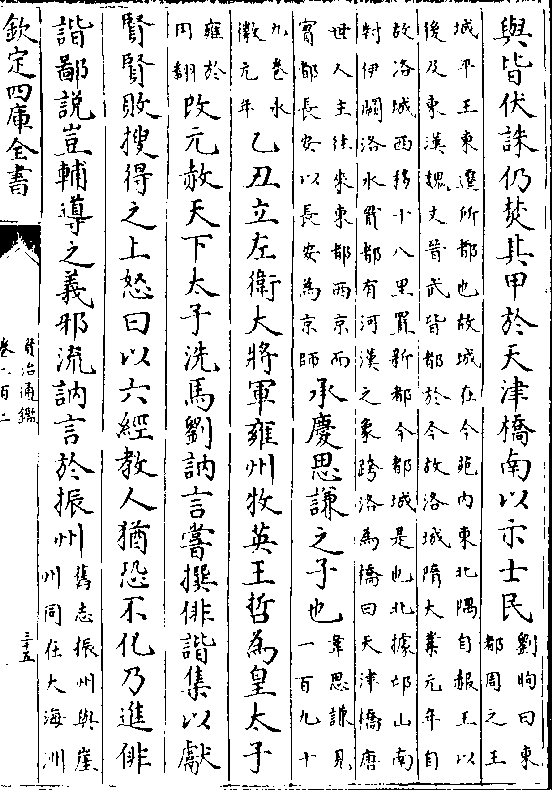 與皆伏誅仍焚其甲於天津橋南以示士民劉昫曰東
都周之王
城平王東遷所都也故城在今苑內東北隅自赧王以
後及東漢魏文晉武皆都於今故洛城隋大業元年自
故洛城西移十八里置新都今都城是也北據邙山南
對伊闕洛水貫都有河漢之象跨洛為橋曰天津橋唐
世人主往來東都西京而
實都長安以長安為京師
承慶思謙之子也韋思謙見
一百九十
九卷永
徽元年
乙丑立左衛大將軍雍州牧英王哲為皇太子
雍於
用翻
改元赦天下太子洗馬劉訥言嘗撰俳諧集以獻
賢賢敗搜得之上怒曰以六經教人猶恐不化乃進俳
諧鄙說豈輔導之義邪流訥言於振州舊志振州與崖
州同在大海洲
欽定四庫全書
資治通鑑
卷二百二
三十五